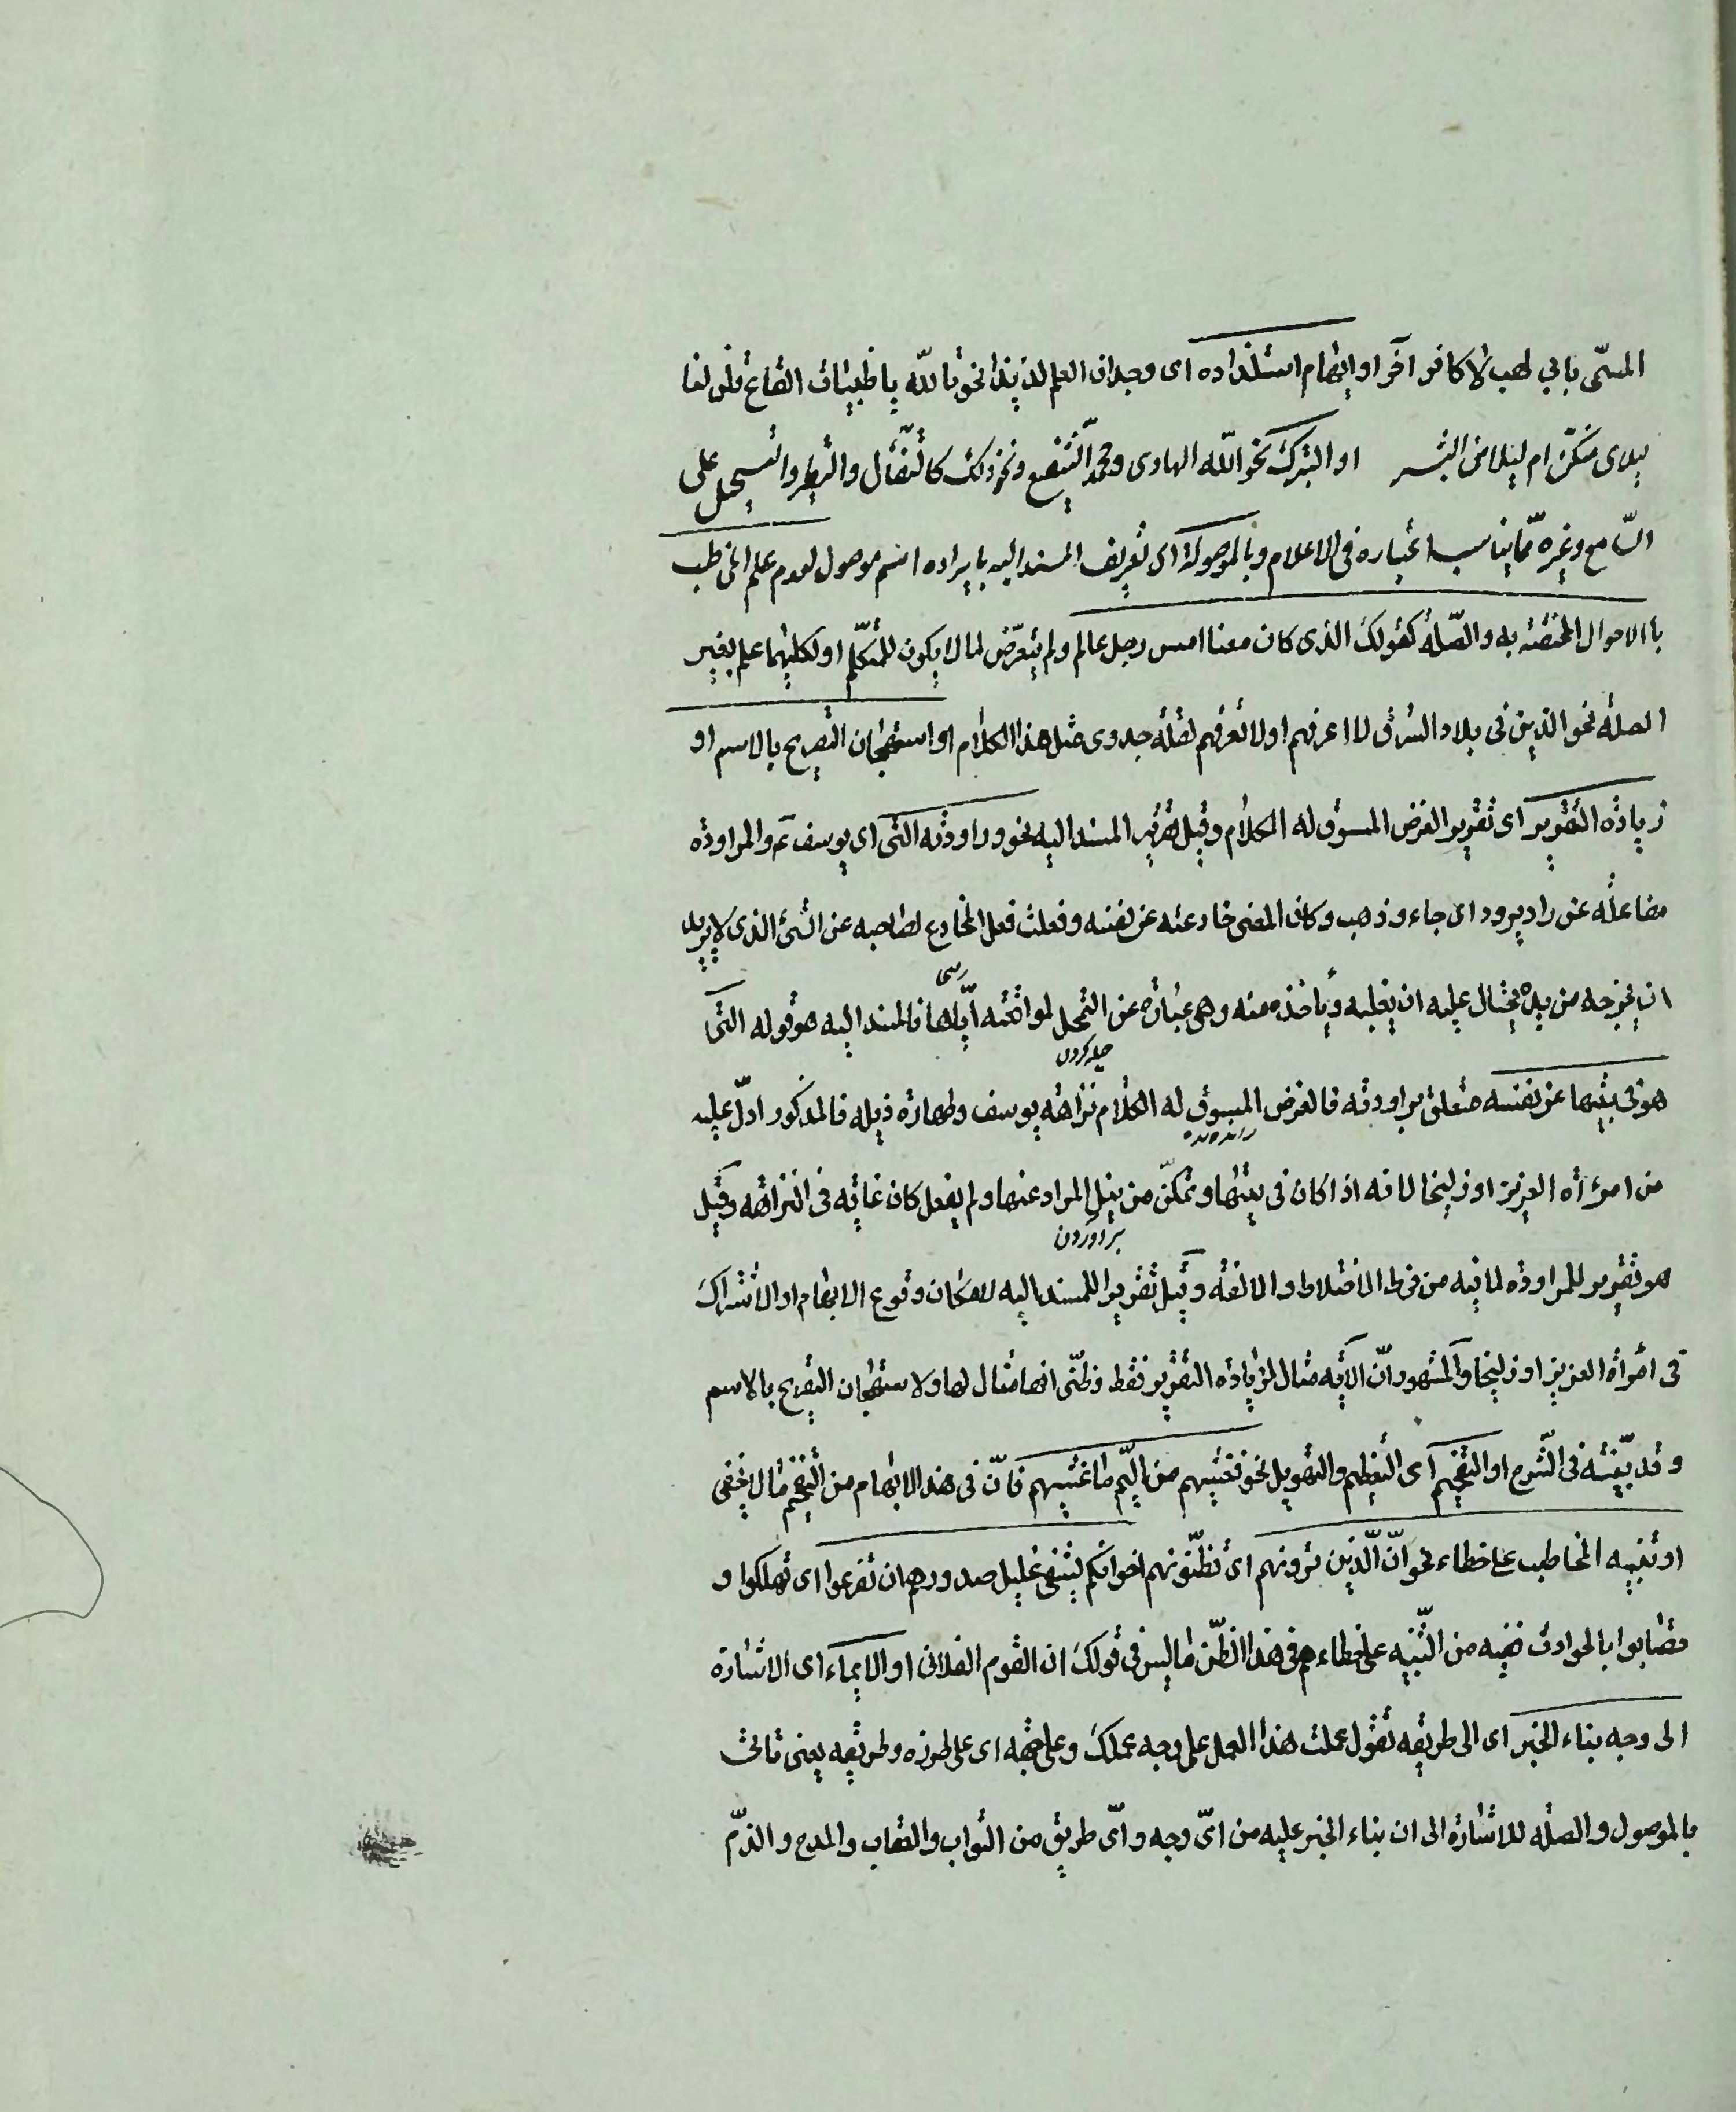 المسمّى بابي لهب لا كافر آخر او ايهام استلذاذه اى وجدان العلم لذيذا نحو تالله يا ظبيات القاع قلن لنا
ليلاى منكنّ ام ليلا من البشر او التبرك نحو الله الهادى و محمد الشفيع و نحو ذلك كالتفأل و التطير و التسجيل على
السّامع و غيره ممّا يناسب اعتباره فى الاعلام و بالموصولية اى تعريف المسند اليه بايراده اسم موصول لعدم علم المخاطب
باالاحوال المختصّة به و الصّلة كقولك الذى كان معنا امس رجل عالم و لم يتعرّض لما لا يكون للمتكلّم او لكليهما علم بغير
الصلة نحو الذين فى بلاد الشرق لا اعرفهم او لا نعرفهم لقلّة جدوى مثل هذا الكلام او استهجان التصريح بالاسم او
زيادة التقرير اى تقرير الغرض المسوق له الكلام و قيل تقرير المسند اليه نحو و راودته التى اى يوسف ع و المراودة
مفاعلة عن راد يرود اى جاء و ذهب و كان المعنى خادعته عن نفسه و فعلت فعل المخادع لصاحبه عن الشئ الذى لا يريد
ان يخرجه من يده يحتال عليه ان يغلبه و يأخذه منه و هى عبارة عن التمحل لمواقعته ايّاها فالمسند اليه هو قوله التى
حيله كردن
هو فى بيتها عن نفسه متعلق براودته فالغرض المسوق له الكلام نزاهة يوسف و طهارة ذيله فالمذكور ادلّ عليه
من امرأة العزيز او زليخا لانه اذا كان فى بيتها و تمكّن من نيل المراد عنها و لم يفعل كان غاية فى النزاهة و قيل
هو تقرير للمراودة لما فيه من فرط الاختلاط و الالفة و قيل تقرير اللمسند اليه لامكان وقوع الابهام او الاشتراك
فى امرأة العزيز او زليخا و المشهور انّ الآية مثال لزيادة التقرير فقط و ظنّى انها مثال لها و لاستهجان التصريح بالاسم
و قد بيّنته فى الشّرح او التفخيم اى التعظيم و التهويل نحو فغشيهم من اليمّ ما غشيهم فانّ فى هذا الابهام من التفخيم ما لا يخفى
او تنبيه المخاطب على خطاء نحو انّ الّذين ترونهم اى تظنّونهم اخوانكم يشفى غليل صدورهم ان تصرعوا اى تهلكوا و
تصابوا بالحوادث ففيه من التّنبيه على خطاءهم فى هذا الظّن ما ليس فى قولك ان القوم الفلانى او الايماء اى الاشارة
الى وجه بناء الخبر اى الى طريقه تقول عملت هذا العمل على وجه عملك و على جهته اى على طرزه و طريقته يعنى تأتى
بالموصول و الصلة للاشارة الى ان بناء الخبر عليه من اىّ وجه و اىّ طريق من الثواب و العقاب و المدح و الذمّ